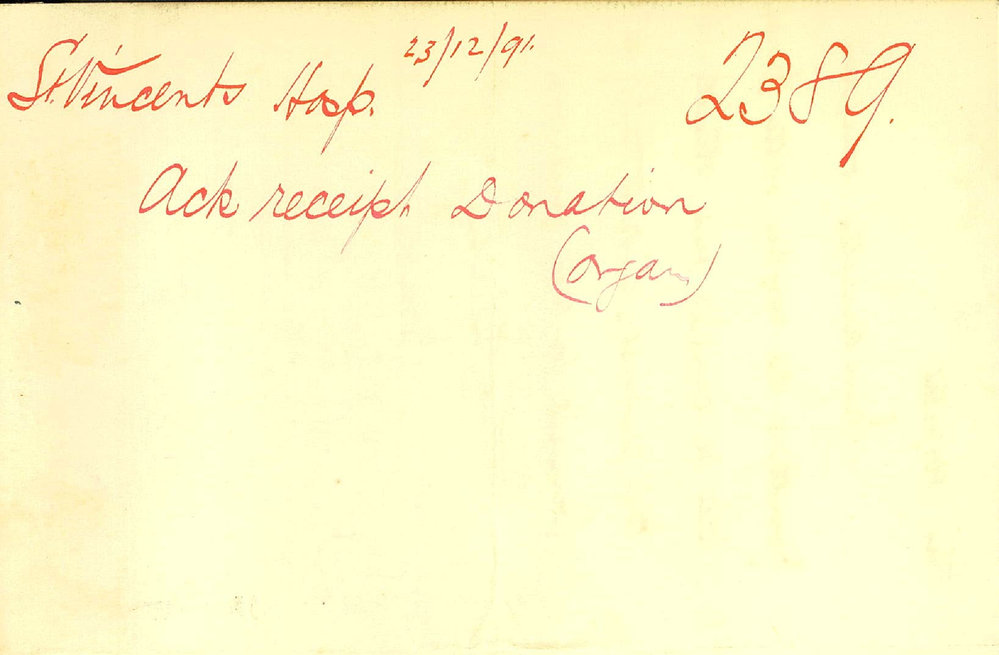 St. Vincents Hosp. 23/12/91. 2389.
Ack receipt Donation
(organ)